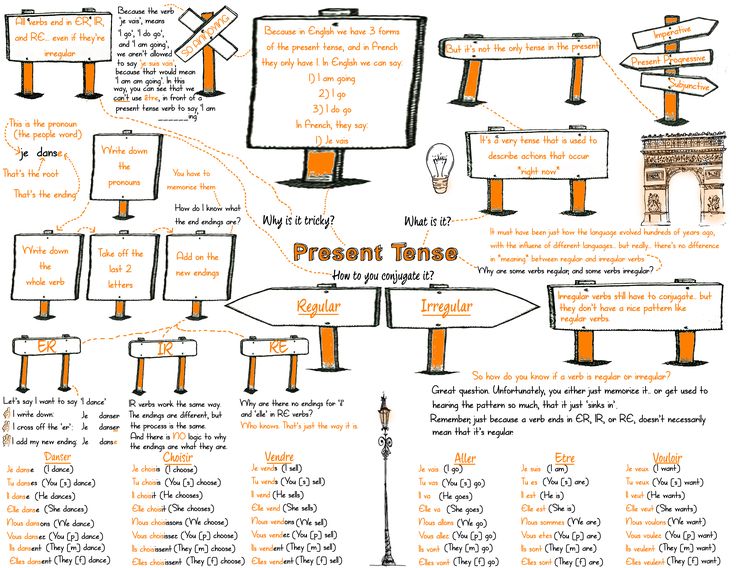 All verbs end in ER, IR,
and RE... even if they're
irregular
Because the verb
'je vais', means
'I go', 'I do go',
and 'I am going',
we aren't allowed
to say 'je suis vais',
because that would mean
'I am am going'. In this
way, you can see that we
can't use être, in front of a
present tense verb to say 'I am
_______ing'
SO ANNOYING
Because in English we have 3 forms
of the present tense, and in French
they only have 1. In English we can say:
1) I am going
2) I go
3) I do go
In French, they say:
1) Je vais
But it's not the only tense in the present
Imperative
Present Progressive
Subjunctive
This is the pronoun
(the people word)
je danse
That's the root
That's the ending
Write down
the
pronouns
You have to
memorice them
How do I know what
the end endings are?
It's a very tense that is used to
describe actions that occur
"right now"
Why is it tricky?
What is it?
Write down
the
whole verb
Take off the
last 2
letters
Add on the
new endings
Present Tense
How to you conjugate it?
It must have been just how the language evolved hundreds of years ago,
with the influene of different languages.. but really.. there's no difference
in "meaning" between regular and irregular verbs
Why are some verbs regular, and some verbs irregular?
Regular
Irregular
Irregular verbs still have to conjugate.. but
they don't have a nice pattern like
regular verbs.
ER
IR
RE
So how do you know if a verb is regular or irregular?
Great question. Unfortunately, you either just memorice it.. or get used to
hearing the pattern so much, that it just 'sinks in'.
Remember, just because a verb ends in ER, IR, or RE, doesn't necessarily
mean that it's regular.
Let's say I want to say 'I dance'
I write down: Je danser
I cross off the 'er': Je danser
I add my new ending: Je danse
IR verbs work the same way.
The endings are different, but
the process is the same.
And there is NO logic to why
the endings are what they are.
Why are there no endings for 'il'
and 'elle' in RE verbs?
Who knows. That's just the way it is
Danser
Je danse (I dance)
Tu danses (You [s] dance)
Il danse (He dances)
Elle danse (She dances)
Nous dansons (We dance)
Vous dansez (You [p] dance)
Ils dansent (They [m] dance)
Elles dansent (They [f] dance)
Choisir
Je choisis (I choose)
Tu choisis (You [s] choose)
Il choisit (He chooses)
Elle choisit (She chooses)
Nous choisissons (We choose)
Vous choisissez (You [p] choose)
Ils choisissent (They [m] choose)
Elles choisissent (They [f] choose)
Vendre
Je vends (I sell)
Tu vends (You [s] sell)
Il vend (He sells)
Elle vend (She sells)
Nous vendons (We sell)
Vous vendez (You [p] sell)
Ils vendent (They [m] sell)
Elles vendent (They [f] sell)
Aller
Je vais (I go)
Tu vas (You [s] go)
Il va (He goes)
Elle va (She goes)
Nous allons (We go)
Vous allez (You [p] go)
Ils vont (They [m] go)
Elles vont (They [f] go)
Etre
Je suis (I am)
Tu es (You [s] are)
Il est (He is)
Elle est (She is)
Nous sommes (We are)
Vous etes (You [p] are)
Ils sont (They [m] are)
Elles sont (They [f] are)
Vouloir
Je veux (I want)
Tu veux (You [s] want)
Il veut (He wants)
Elle veut (She wants)
Nous voulons (We want)
Vous voulez (You [p] want)
Ils veulent (They [m] want)
Elles veulent (They [f] want)